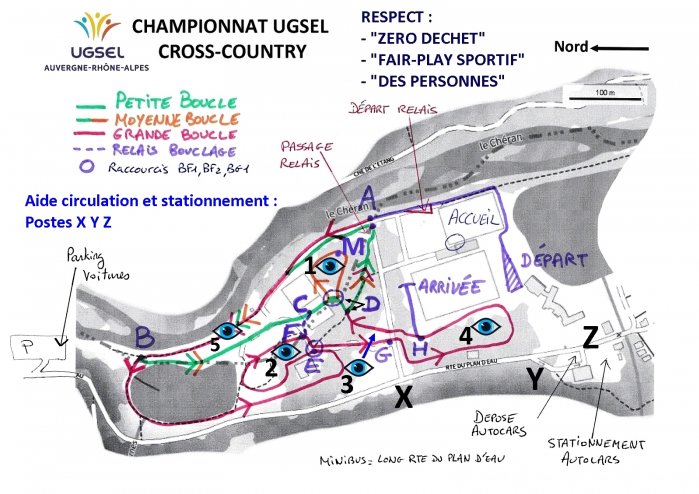 CHAMPIONNAT UGSEL
CROSS-COUNTRY
UGSEL
AUVERGNE-RHÔNE-ALPES
RESPECT :
- "ZERO DECHET"
- "FAIR-PLAY SPORTIF"
- "DES PERSONNES"
Nord
100 m
PETITE BOUCLE
MOYENNE BOUCLE
GRANDE BOUCLE
RELAIS BOUCLAGE
Raccourcis BF1, BF2, BG1
DÉPART RELAIS
PASSAGE
RELAIS
CHE DE L'ETANG
le Chéran
Aide circulation et stationnement :
Postes X Y Z
le Chéran
A
ACCUEIL
Parking
Voitures
M
DÉPART
1
ARRIVÉE
C
D
B
5
F
4
P
2
E
G
H
Z
3
RTE DU PLAN D'EAU
X
Y
DEPOSE
AUTOCARS
STATIONNEMENT
AUTOCARS
MINIBUS = LONG RTE DU PLAN D'EAU